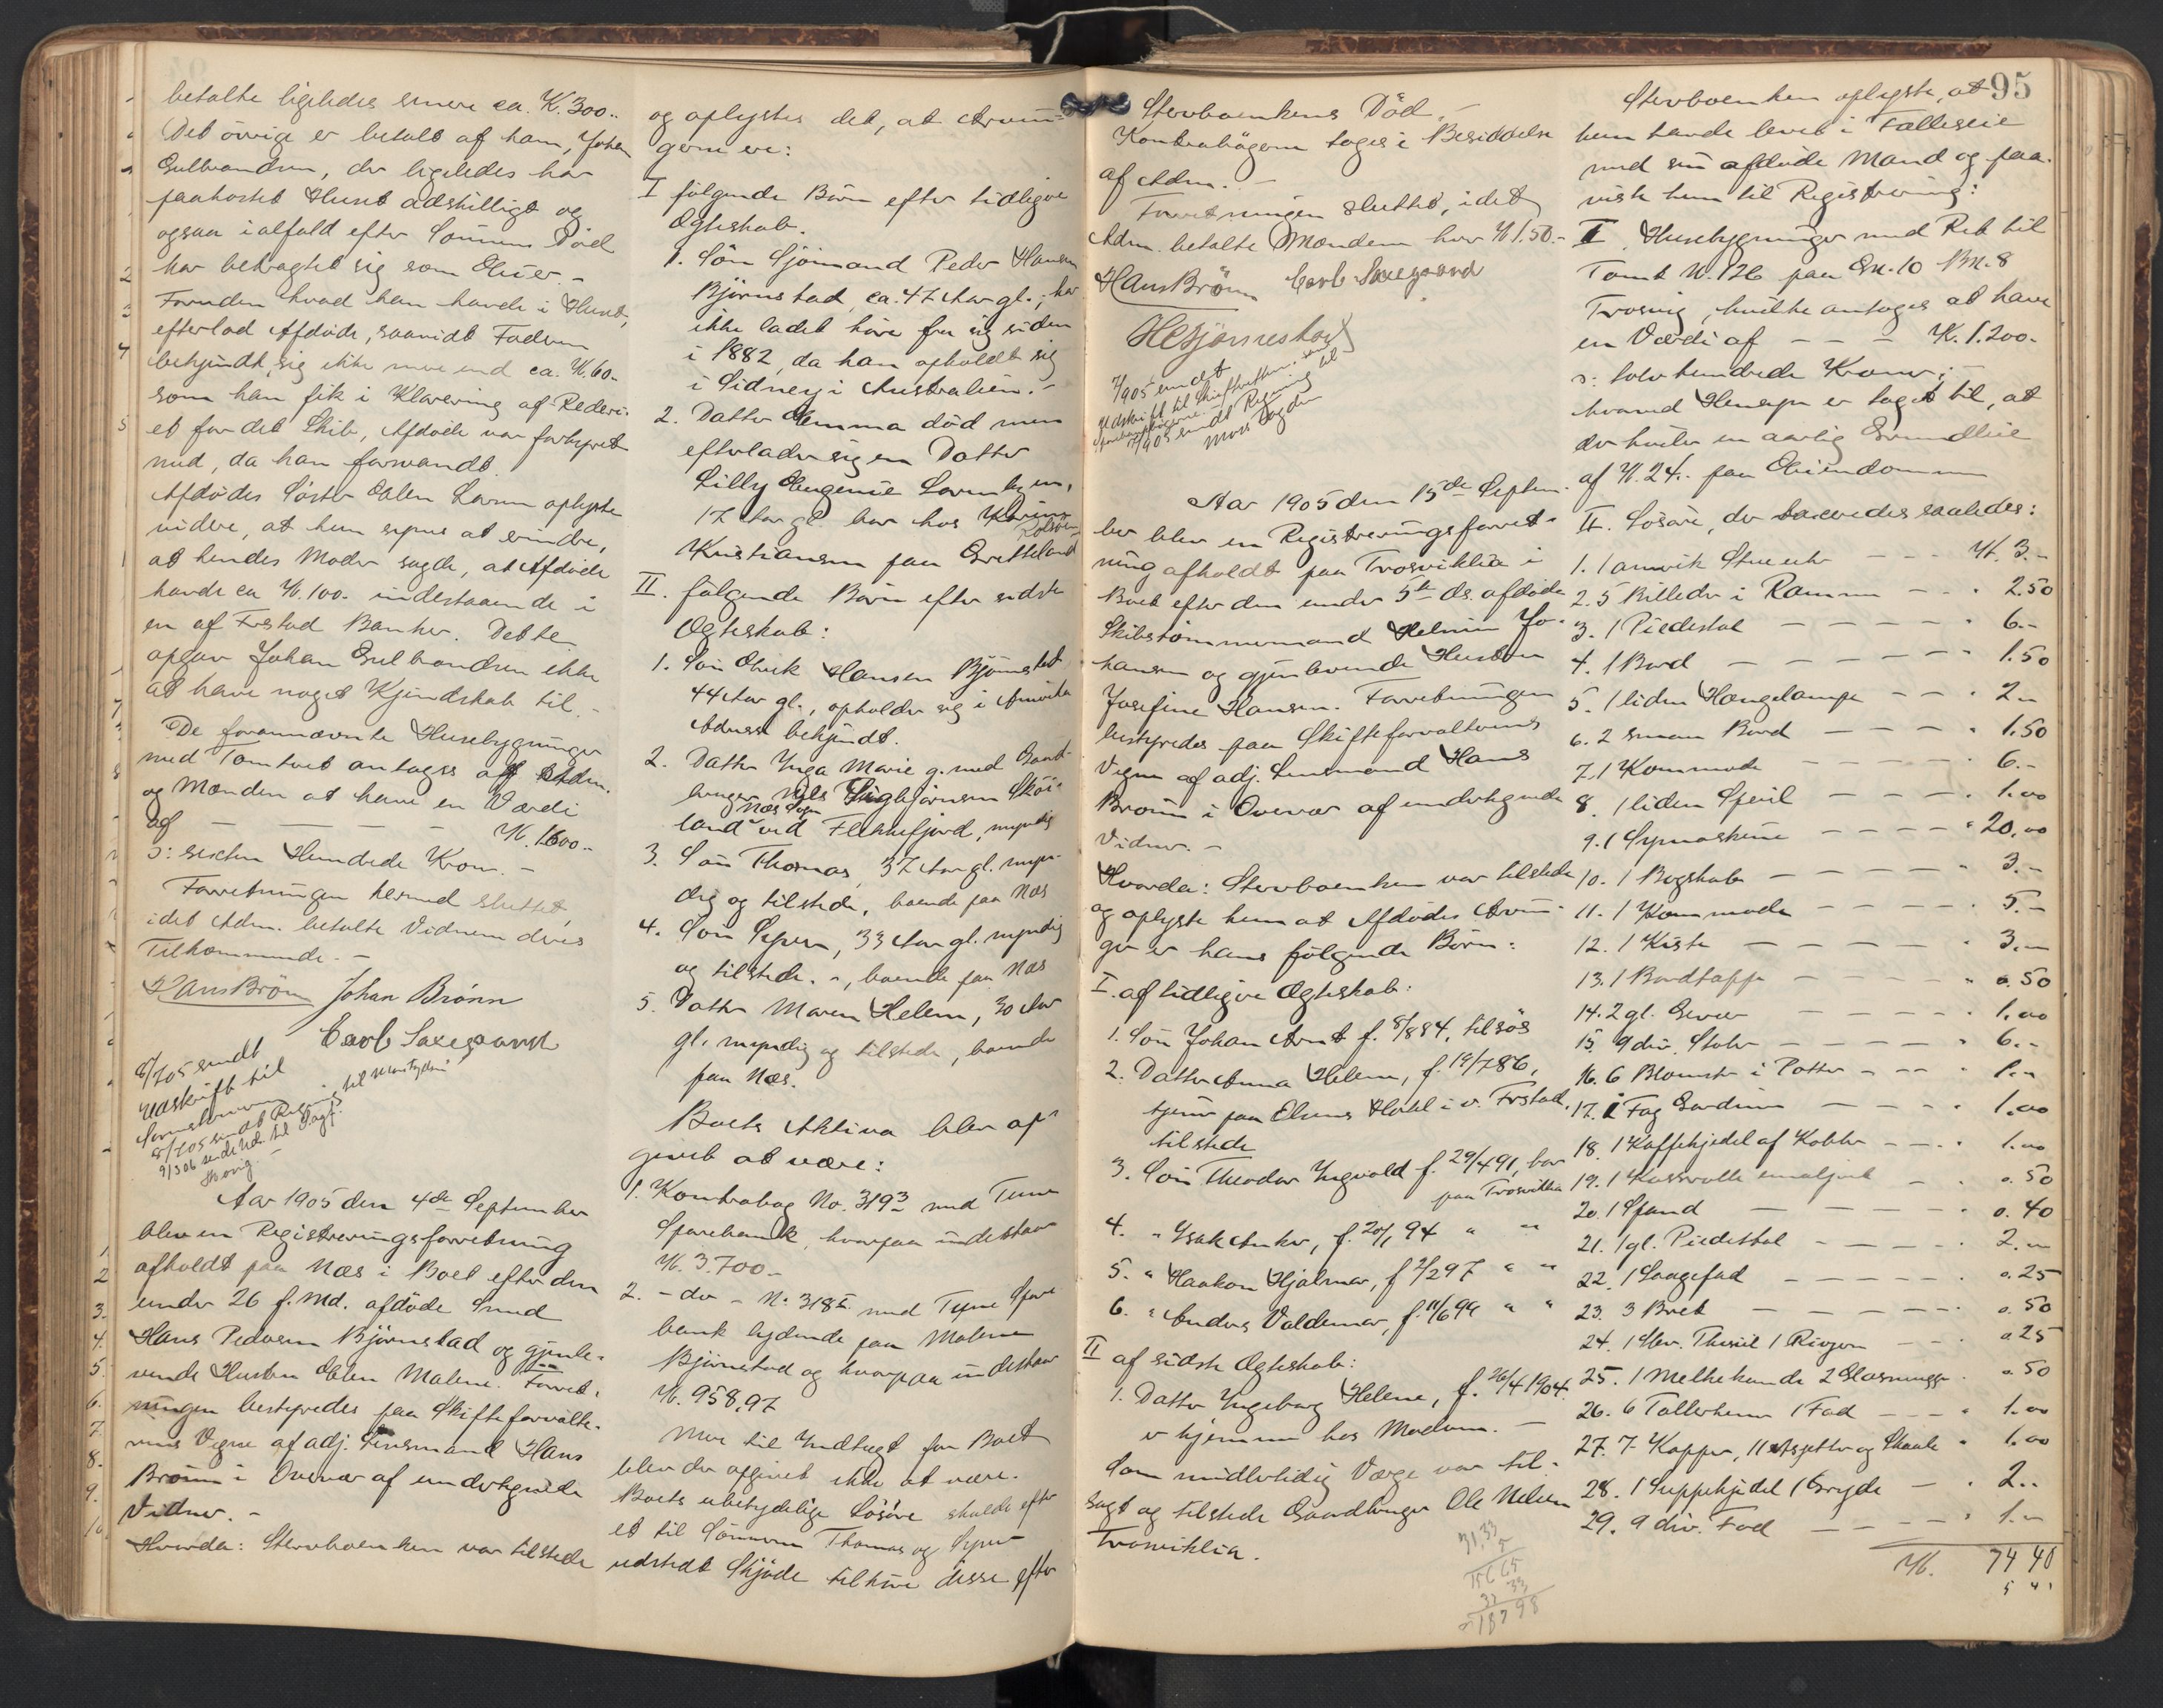 betalte ligeledes senere ca. K. 300..
Det övrige er betalt af ham, Johan
Gulbrandsen, der ligeledes har
paakostet Huset adskilligt og
ogsaa ialfald efter Sönnens Död
har betragtet sig som Eier. -
Foruden hvad han havde i Huset,
efterlod Afdöde, saavidt Faderen
bekjendt, sig ikke mere end ca. K. 60.-
som han fik i Klarering af Rederi-
et for det Skib, Afdöde var forhyret
med, da han forsvandt.
Afdödes Söster Elen Larsen oplyste
videre, at hun synes at erindre,
at hendes Moder sagde, at Afdöde
havde ca K. 100.- indestaaende i
en af Fr.stad Banker. Dette
opgav Johan Gulbrandsen ikke
at have noget Kjendskab til. -
De forannævnte Husebygninger
med Tomteret antages af Adm.
og Mænden at have en Værdi
af — — — — K. 1600..
ɔ: sexten Hundrede Kroner. -
Forretningen hermed sluttet,
idet Adm. betalte Vidnerne deres
Tilkommende. -
Hans Brönn Johan Brönn
Carl Saxegaard
8/705 sendt
Udskrift til
8/705 sendt Regning til
Aar 1905 den 4de September
blev en Registreringsforretning
afholdt paa Næs i Boet efter den
under 26 f. Md. afdöde Smed
Hans Pedersen Björnstad og gjenle-
vende Hustru Elen Malene. Forret-
ningen bestyredes paa Skifteforvalte-
rens Vegne af adj. Lensmand Hans
Brönn i Overvær af undertegnede
Vidner. -
Hvorda: Stervboenken var tilstede
og oplystes det, at Arvin-
gerne ere:
I fölgende Börn efter tidligere
Ægteskab.
1. Sön Sjömand Peder Hansen
Björnstad, ca. 47 Aar gl.; har
ikke ladet höre fra sig siden
i 1882, da han opholdt sig
i Sidney i Australien. -
2. Datter Emma död men
efterlader sig en Datter
Lilly Eugenie
17 Aar gl. bor hos
Kristiansen paa Gretteland
II. fölgende Börn efter sidste
Ægteskab:
1. Sön Hansen Björnstad
44 Aar gl., opholder sig i Amerika
Adresse bekjendt.
2. Datter Inga Marie g. med Gaard-
bruger Nils Sigbjörnsen Sköi-
land Næs Sogn ved Flekkefjord, myndig
3. Sön Thomas, 37 Aar gl. myn-
dig og tilstede, boende paa Næs
4. Sön 33 Aar gl. myndig
og tilstede. -, boende paa Næs
5. Datter Maren Helene, 30 Aar
gl. myndig og tilstede, boende
paa Næs.
Boets Aktiva blev op-
givet at være:
1. Kontrabog No. 319 3 med Tune
Sparebank, hvorpaa indestaar
K. 3.700.-
2. - do - No. 318 I med Tune Spare
bank lydende paa Malene
Björnstad og hvorpaa indestaar
K. 958,97
Mere til Indtægt for Boet
blev der opgivet ikke at være.
Boets ubetydelige Lösöre skulde efter
et til Sönnerne Thomas og
udstedt Skjöde tilhöre disse efter
Stervboenkens Död. -
Kontrabögerne toges i Besiddelse
af Adm. -
Forretningen sluttet, idet
Adm. betalte Mændene hver K 1.50.-
Hans Brönn Carl Saxegaard
7/905 sendt
Udskrift til Skifteretten
7/905 sendt Regning til
Aar 1905 den 15de Septem-
ber blev en Registreringsforret-
ning afholdt paa Trosviklia i
Boet efter den under 5te ds. afdöde
Skibstömmermand Helmin Jo-
hansen og gjenlevende Hustru
Josefine Hansen. Forretningen
bestyredes paa Skifteforvalterens
Vegne af adj. Lensmand Hans
Brönn i Overvær af undertegnede
Vidner. -
Hvorda: Stervboenken var tilstede
og oplyste hun at Afdödes Arvin-
ger er hans fölgende Börn:
I. af tidligere Ægteskab:
1. Sön Johan Arnt f. 8/884, tilsös
2. Datter Anna Helene, f. 19/786,
tjener paa Olsens Hotel i v. Frstad,
tilstede
3. Sön Theodor Ingvald f. 29/491, bor
paa Trosviklia
4. " Isak Anker, f. 20/1 94 " "
5. " Haakon Hjalmar, f 2/297 " "
6. " Anders Valdemar, f. 11/699 " "
II af sidste Ægteskab:
1. Datter Ingeborg Helene, f. 26/4 1904.
er hjemme hos Moderen. -
Som midlertidig Værge var til-
sagt og tilstede Gaardbruger Ole Nilsen
Trosviklia.
31,33
5
156 65
31 33
187 98
95
Stervboenken oplyste, at
hun havde levet i Fælleseie
med sin afdöde Mand og paa-
viste hun til Registrering:
I. Husebygninger med Ret til
Tomt N. 126 paa Gn. 10 Bn. 8
Trosvig, hvilke antages at have
en Værdi af — — — K. 1.200.-
ɔ: tolv hundrede Kroner; -
hvorved Hensyn er taget til, at
der hviler en aarlig Grundleie
af K. 24.- paa Eiendommen
II. Lösöre, der taxeredes saaledes:
1. 1 amrik Stueuhr — — — K. 3.-
2. 5 Billeder i Ramme — — " 2.50
3. 1 Piedestal — — — — — " 6.-
4. 1 Bord — — — — — — " 1.50
5. 1 liden Hængelampe — — " 2.-
6. 2 smaa Bord — — — — " 1.50
7. 1 Kommode — — — — — " 6.-
8. 1 liden Speil — — — — " 1.00
9. 1 Symaskine — — — — " 20.00
10. 1 Bogskab — — — — — " 3.-
11. 1 Kommode — — — — " 5.-
12. 1 Kiste — — — — — " 3.-
13. 1 Bordtæppe — — — — " 0.50
14. 2 gl. Senge — — — — " 1.00
15. 9 div. Stole — — — — " 6.-
16. 6 Blomster i Potter — — " 1.-
17. 1 Fag Gardiner — — — " 1.00
18. 1 Kaffekjedel af Kobber — — " 1.00
19. 1 Kasserolle emaljeret — " 0.50
20. 1 Spand — — — — — " 0.40
21. 1 gl. Piedestal — — — — " 2.-
22. 1 Saagefad — — — — — " 0.25
23. 3 Bret — — — — — — " 0.50
24. 1 Theseil 1 Rivjern — — " 0.25
25. 1 Melkekande 2 Glasmugger " 0.50
26. 6 Tallerkener 1 Fad — — — " 1.00
27. 7 Kopper, 11 Assjetter og Skaale " 1.00
28. 1 Suppekjedel 1 Gryde — " 2..
29. 9 div. Fad — — — — " 1.-
K. 74 40